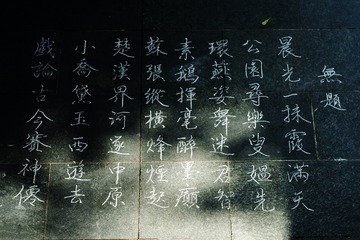 無題
晨光一抹霞滿天
公園尋樂叟媼先
環蘇姿舞迷君智
素鵝揮毫醉墨癲
蘇張縱橫烽煙起
楚漢界河逐中原
小喬黛玉西遊去
戲論古今賽神僊